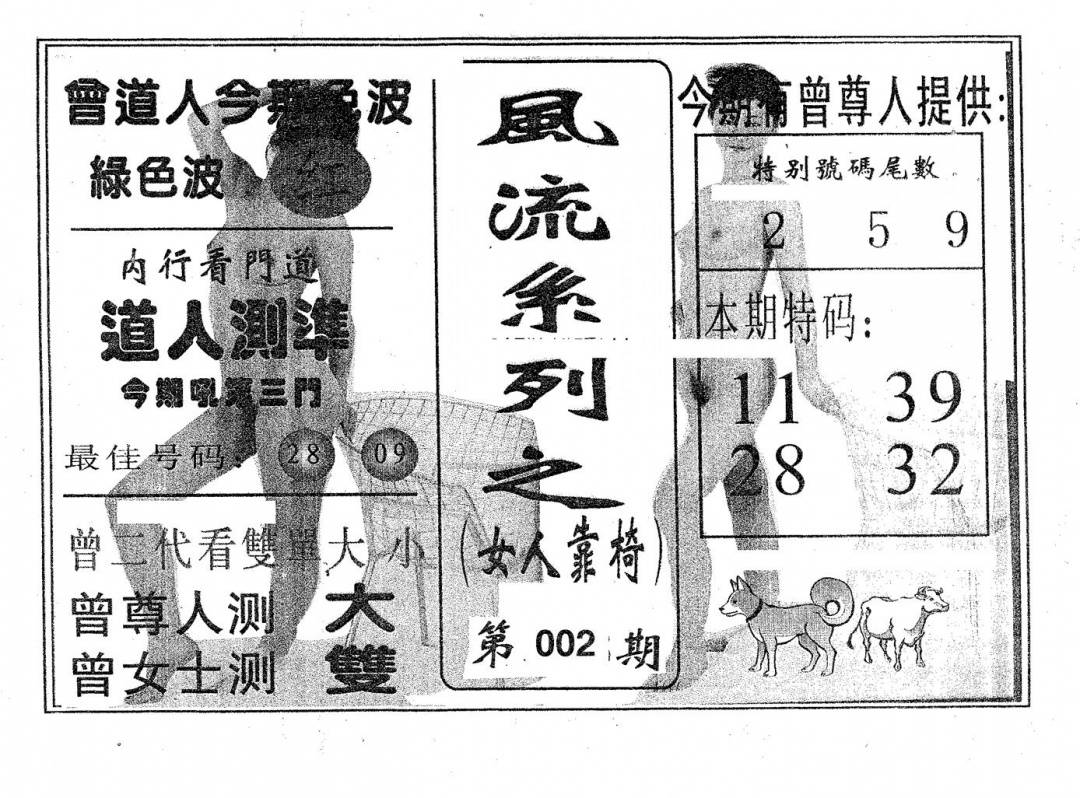 曾道人今期色波
綠色波 红
內行看門道
道人測準
今期吼實三門
最佳号码: 28 09
曾二代看雙單大小
曾尊人测 大
曾女士测 雙
風流系列之
(女人靠椅)
第 002 期
今期有曾尊人提供:
特别號碼尾數
2 5 9
本期特码:
11 39
28 32